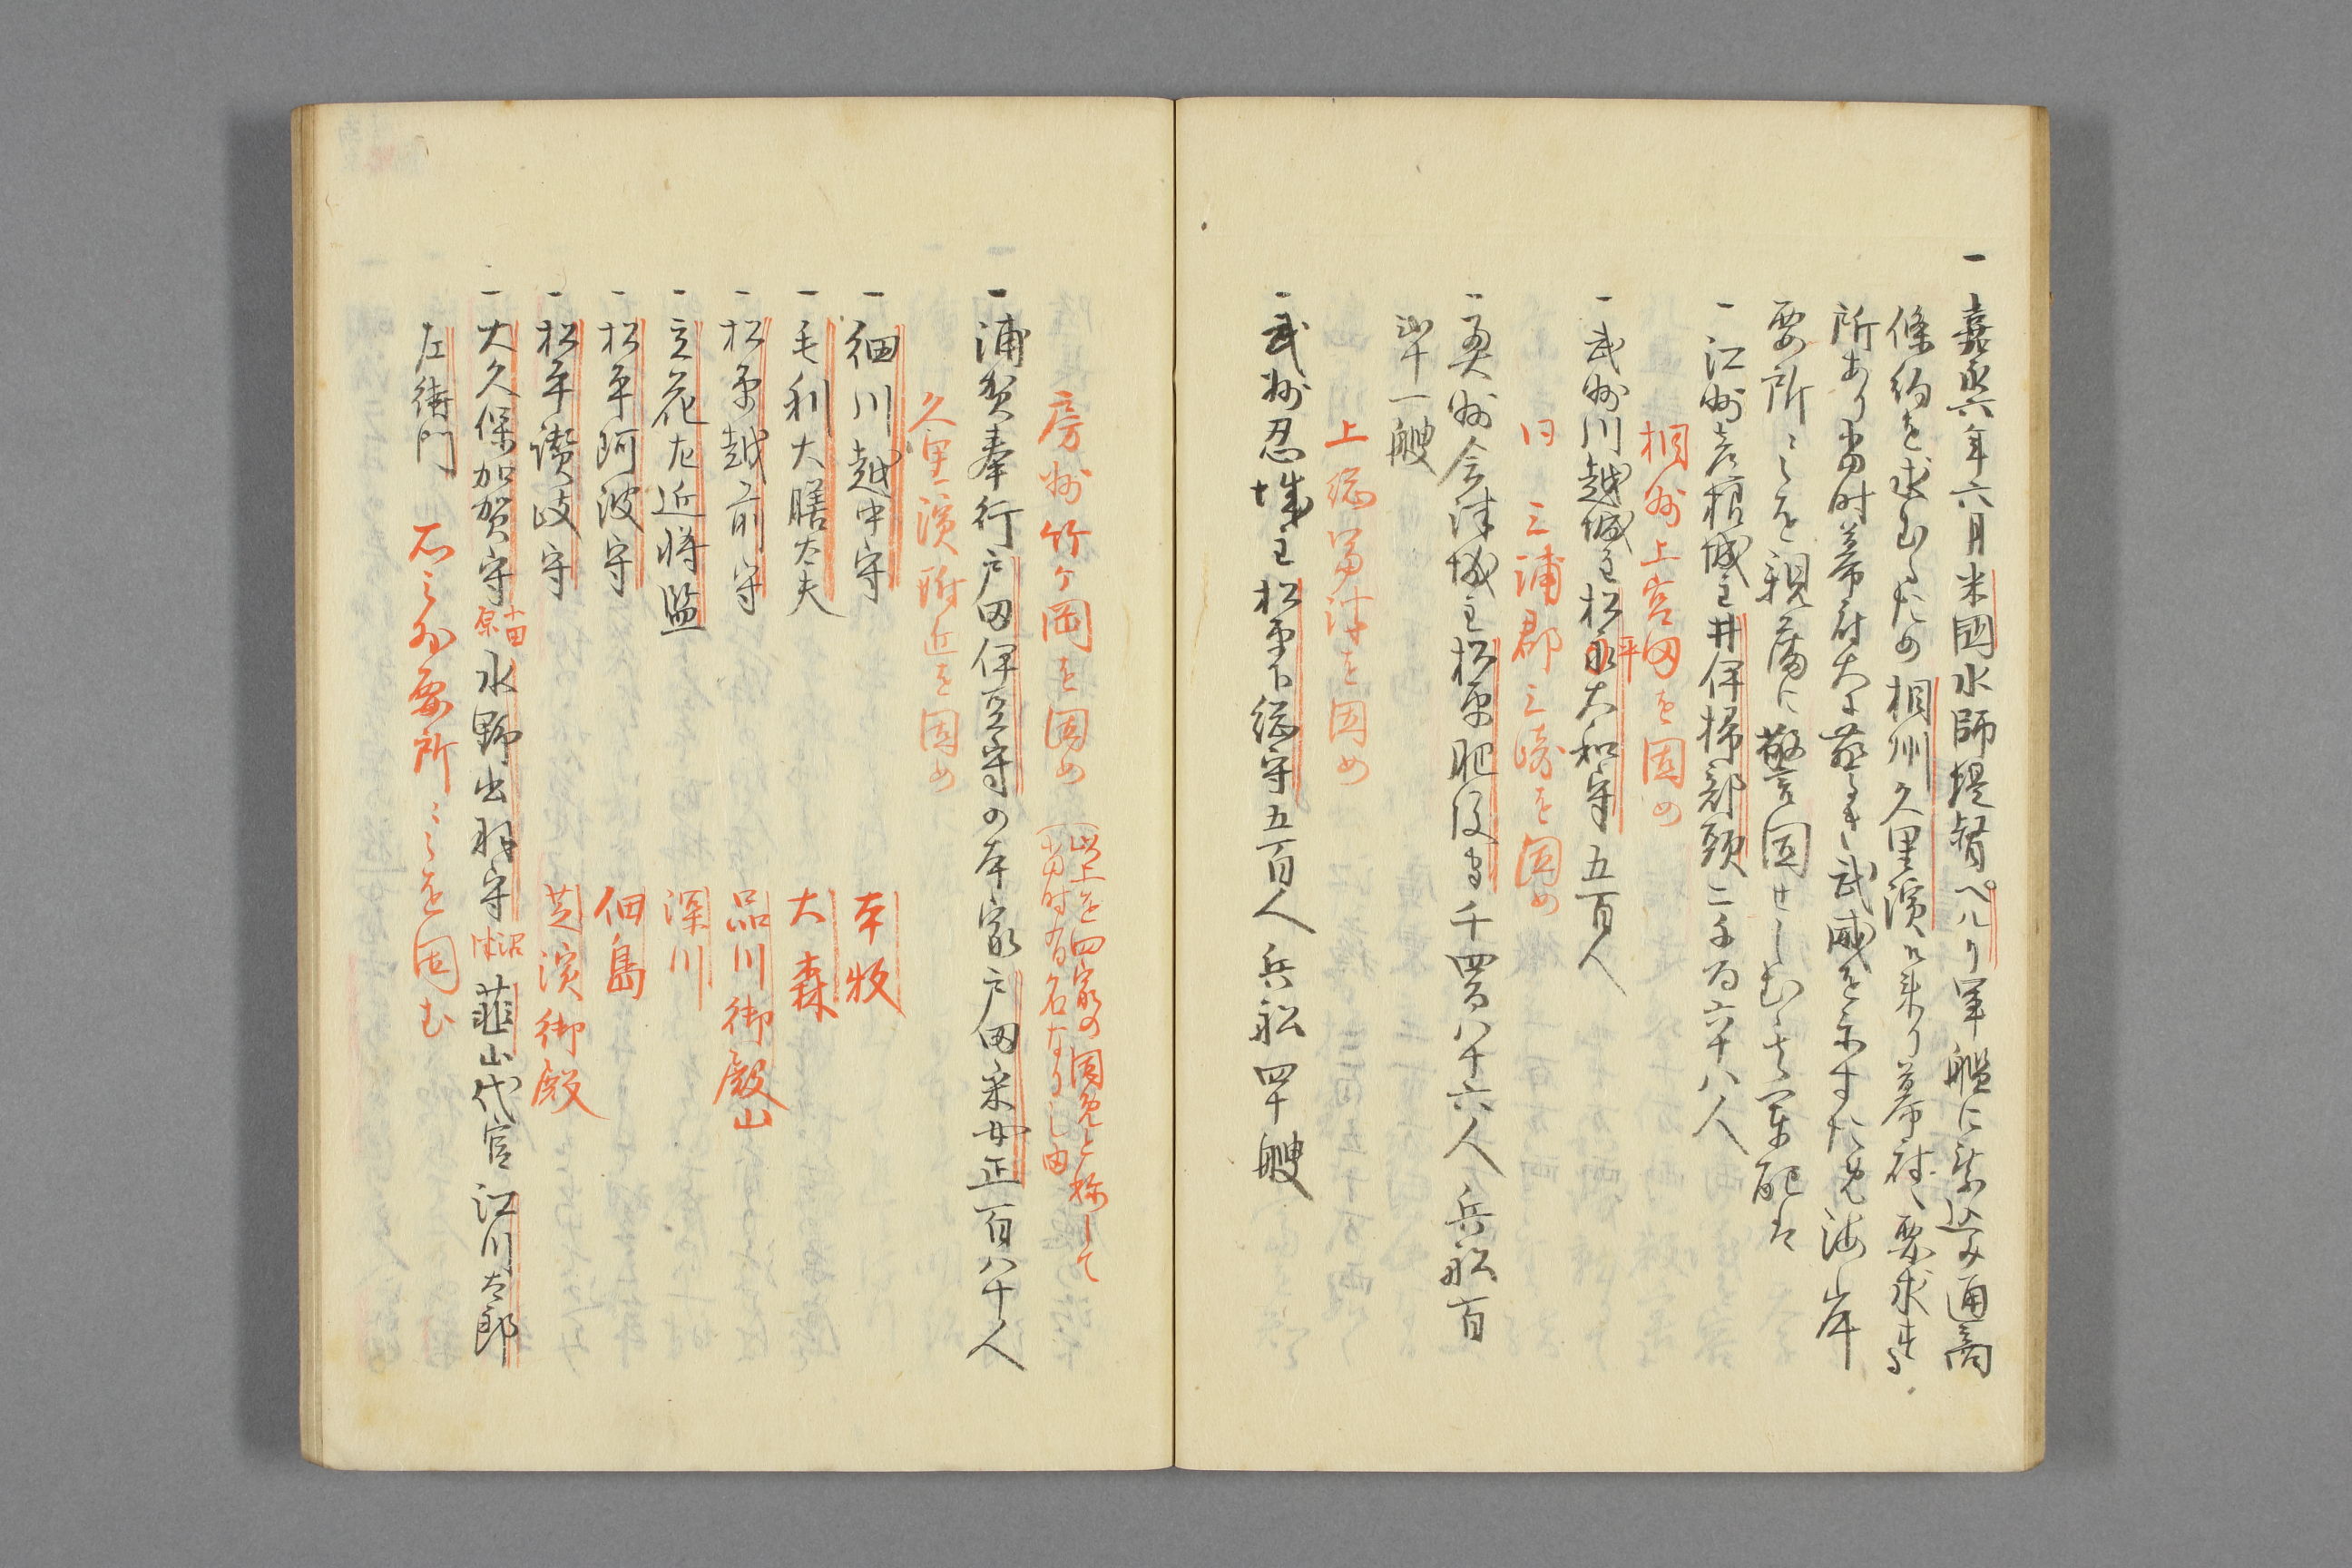 一嘉永六年六月米國水師提督ペルリ軍艦に乗込み通商
條約を求むるため相州久里濱に来り幕府へ要求する
所あり当时幕府大に驚き武威を示すため海岸
要所〻〻を親藩に警固せしむ其軍配は
一江州彦根城主井伊掃部頭二千百六十八人
相州上宮田を固め
一武州川越城主松平大和守五百人
同三浦郡三崎を固め
一奥州会津城主松平肥後守千四百八十六人兵船百
四十一艘
上総富津を固め
一武州忍城主松平下総守五百人兵船四十艘
房州竹ヶ岡を固め
以上を四家の固免と称して
当时有名なりし由
一浦賀奉行戸田伊豆守の本家戸田采女正百八十人
久里濱附近を固め
一細川越中守 本牧
一毛利大膳太夫 大森
一松平越前守 品川御殿山
一立花左近将監 深川
一松平阿波守 佃島
一松平讃岐守 芝濱御殿
一大久保加賀守 小田原 水野出羽守 沼津 韮山代官 江川太郎
左衛門 右之外要所〻〻を固む